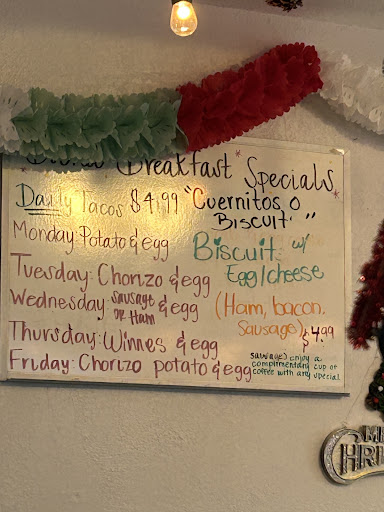 Breakfast Specials
Daily Tacos $4.99
Monday: Potato & egg
Tuesday: Chorizo & egg
Wednesday: Sausage or Ham & egg
Thursday: Winnes & egg
Friday: Chorizo potato & egg
"Cuernitos o
Biscuit"
Biscuit w/
Egg/cheese
(Ham, bacon,
Sausage) $4.99
enjoy a
complimentary cup of
coffee with any special